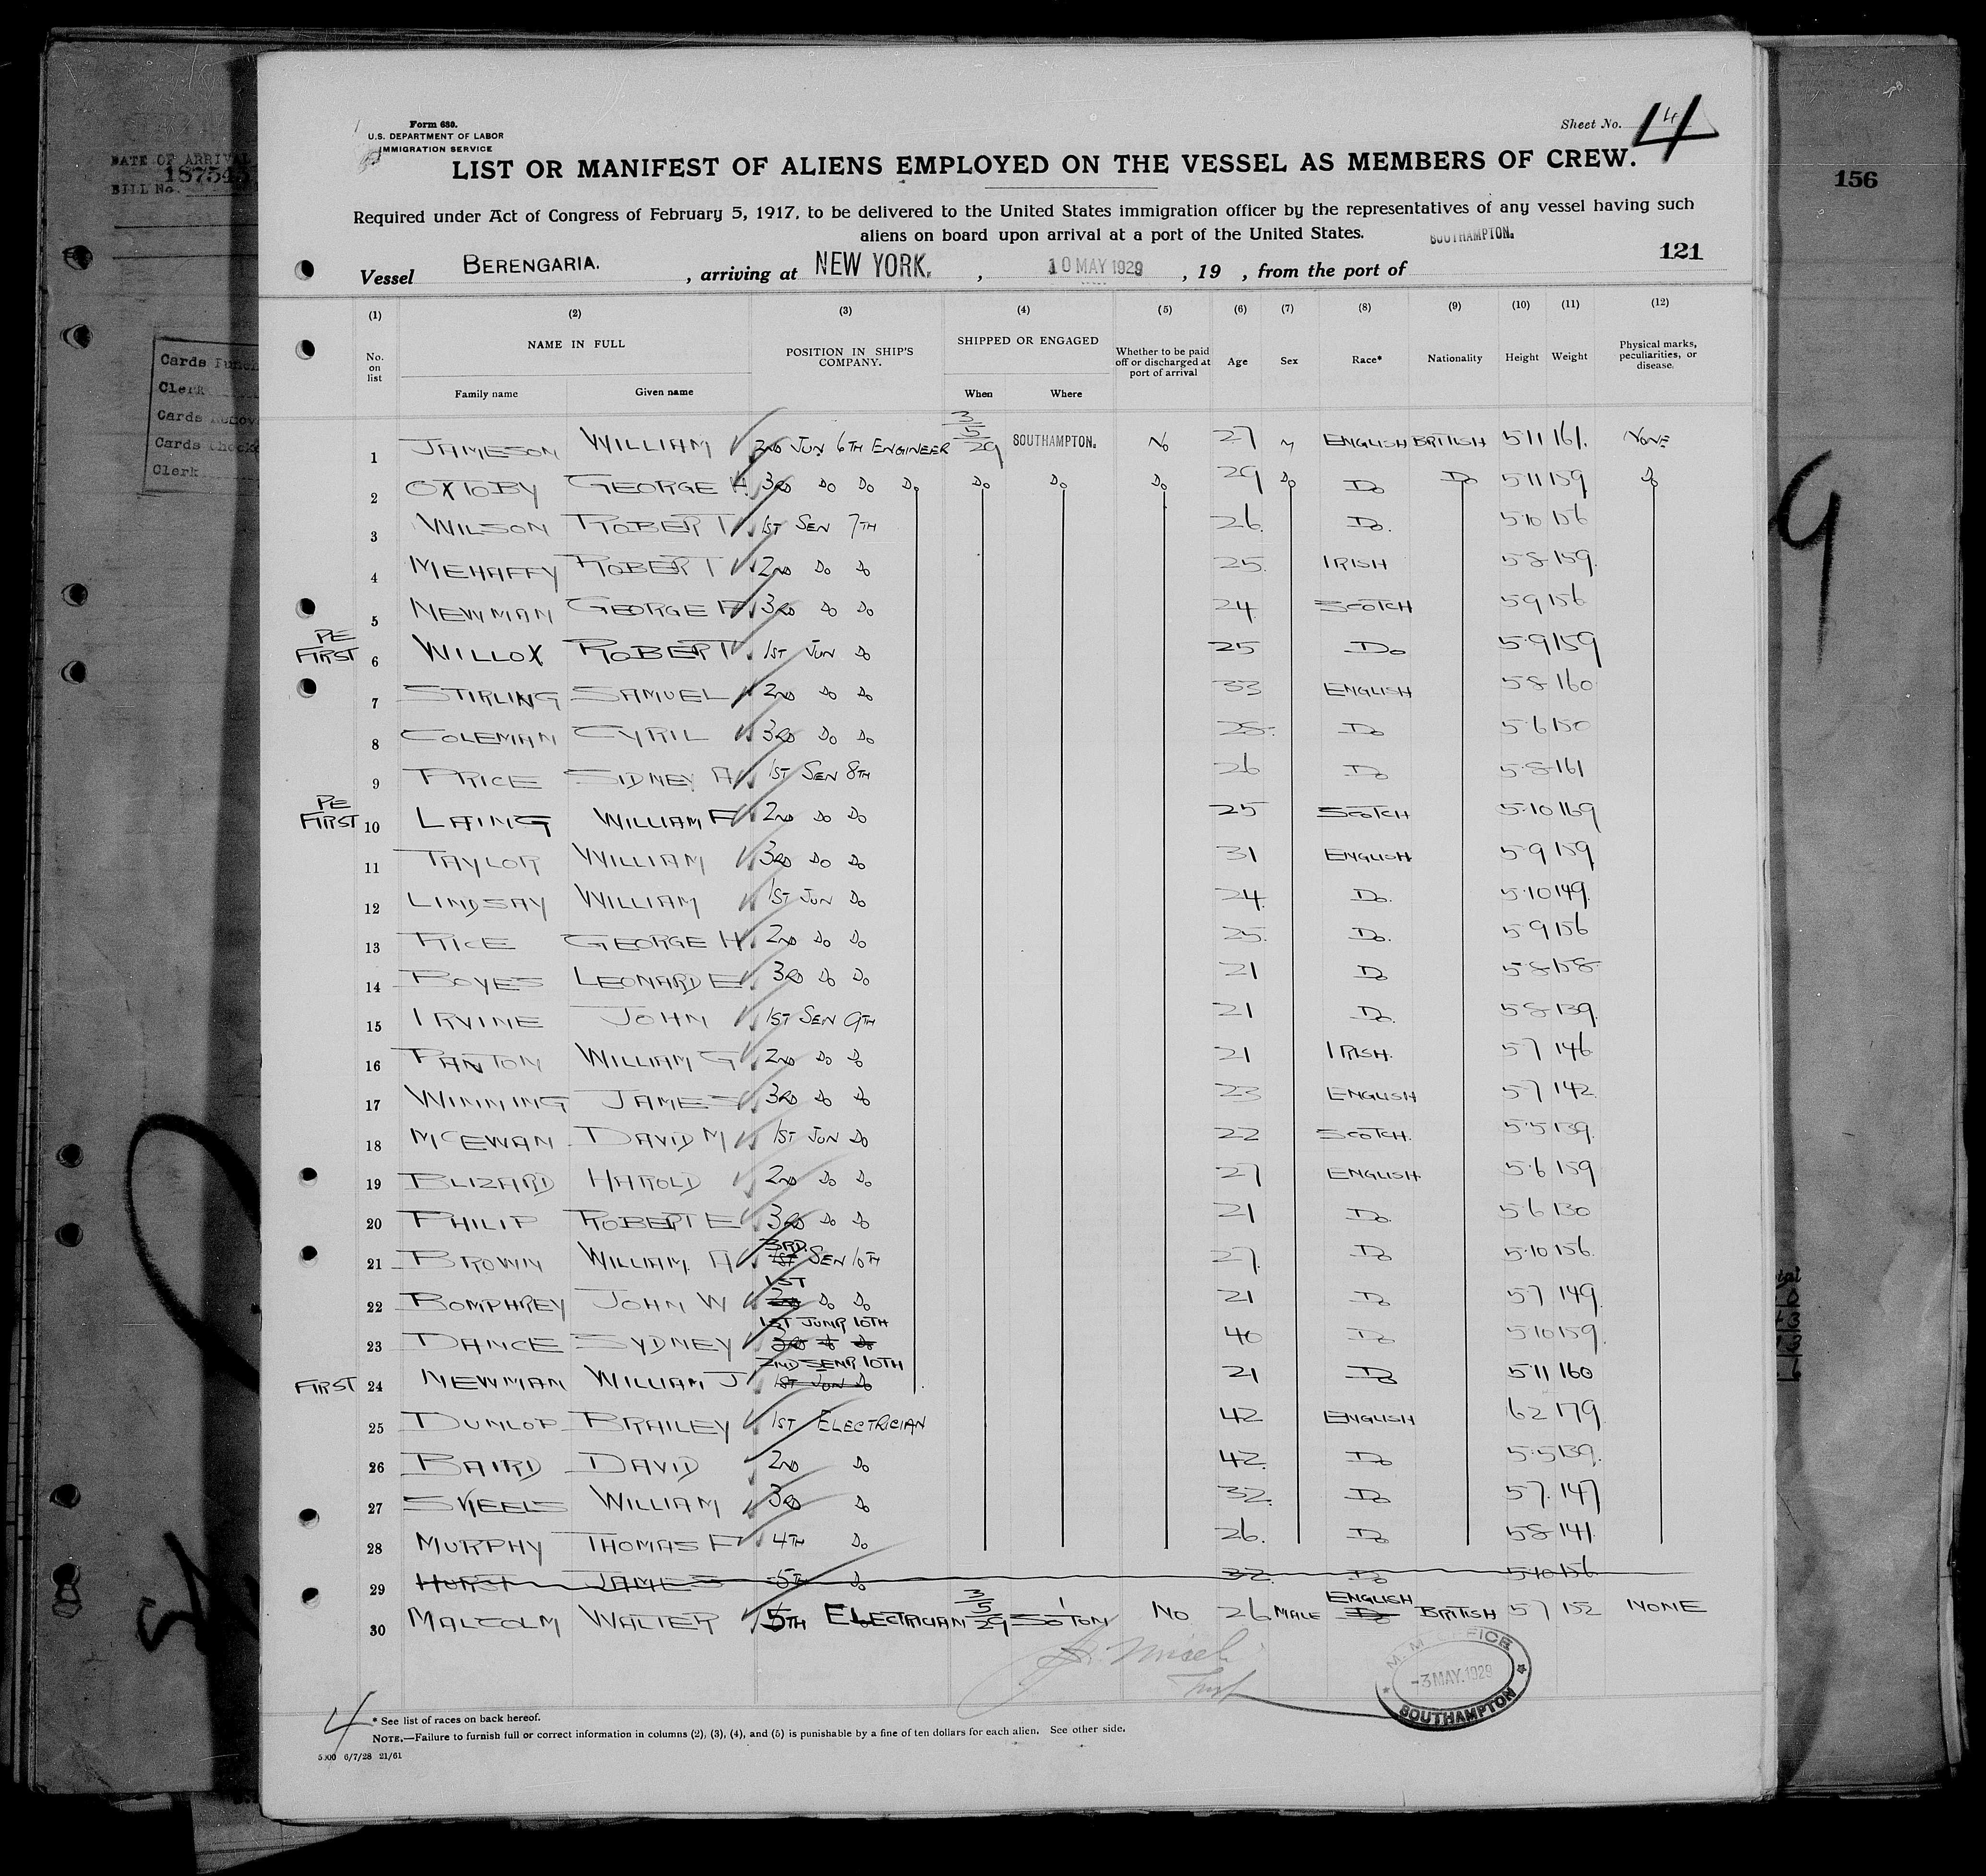 Form 680.
U.S. DEPARTMENT OF LABOR
IMMIGRATION SERVICE
Sheet No. 4
LIST OR MANIFEST OF ALIENS EMPLOYED ON THE VESSEL AS MEMBERS OF CREW.
Required under Act of Congress of February 5, 1917, to be delivered to the United States immigration officer by the representatives of any vessel having such
aliens on board upon arrival at a port of the United States.
SOUTHAMPTON.
121
Vessel BERENGARIA. , arriving at NEW YORK. , 10 MAY 1929 , 19 , from the port of
(1) (2) (3) (4) (5) (6) (7) (8) (9) (10) (11) (12)
No. on list NAME IN FULL POSITION IN SHIP'S COMPANY. SHIPPED OR ENGAGED Whether to be paid off or discharged at port of arrival Age Sex Race* Nationality Height Weight Physical marks, peculiarities, or disease.
Family name Given name When Where
1 JAMESON WILLIAM 2ND JUN 6TH ENGINEER 3/5/29 SOUTHAMPTON. NO 27 M ENGLISH BRITISH 5 11 161. NONE
2 OXTOBY GEORGE H. 3RD DO DO DO DO DO DO 29 DO DO DO 5 11 159 DO
3 WILSON ROBERT 1ST SEN 7TH 26. DO. 5 10 156
4 MEHAFFY ROBERT 2ND DO DO 25. IRISH 5 8 159.
5 NEWMAN GEORGE 3RD DO DO 24 SCOTCH 5 9 156
PE FIRST 6 WILLOX ROBERT 1ST JUN DO 25 DO 5.9 159
7 STIRLING SAMUEL 2ND DO DO 33 ENGLISH 5 8 160
8 COLEMAN CYRIL 3RD DO DO 25. DO 5.6 150
9 PRICE SIDNEY A 1ST SEN 8TH 26 DO 5.8 161
PE FIRST 10 LAING WILLIAM F 2ND DO DO 25 SCOTCH 5.10 169
11 TAYLOR WILLIAM 3RD DO DO 31 ENGLISH 5 9 159
12 LINDSAY WILLIAM 1ST JUN DO 24. DO. 5.10 149.
13 RICE GEORGE H. 2ND DO DO 25. DO. 5 9 156
14 BOYES LEONARD E 3RD DO DO 21 DO 5 8 158
15 IRVINE JOHN 1ST SEN 9TH 21 DO. 5 8 139.
16 PANTON WILLIAM G 2ND DO DO 21 IRISH. 5 7 146
17 WINNING JAMES 3RD DO DO 23 ENGLISH 5 7 142
18 MCEWAN DAVID M 1ST JUN DO 22 SCOTCH. 5.5 139.
19 BLIZARD HAROLD 2ND DO DO 27 ENGLISH. 5.6 159
20 PHILIP ROBERT E 3RD DO DO 21 DO 5.6 130
21 BROWN WILLIAM. A 3RD. 1ST SEN 10TH 27. DO 5.10 156.
22 BOMPHREY JOHN W 1ST 2ND DO DO 21 DO 5 7 149.
23 DANCE SYDNEY 1ST JUNR 10TH 3RD DO DO 40 DO 5 10 159.
FIRST 24 NEWMAN WILLIAM J 2ND SENR 10TH 1ST JUN DO 21 DO 5.11 160
25 DUNLOP BRAILEY 1ST ELECTRICIAN 42 ENGLISH 6 2 179
26 BAIRD DAVID 2ND DO 42. DO 5.5 139.
27 SKEELS WILLIAM 3RD DO 32. DO 5 7. 147
28 MURPHY THOMAS F 4TH DO 26. DO 5 8 141.
29 HURST JAMES 5TH DO 32. DO 5.10 156
30 MALCOLM WALTER 5TH ELECTRICIAN 3/5/29 SO'TON NO 26 MALE ENGLISH DO BRITISH 5 7 152 NONE
-3 MAY.1929
SOUTHAMPTON
4
* See list of races on back hereof.
NOTE.—Failure to furnish full or correct information in columns (2), (3), (4), and (5) is punishable by a fine of ten dollars for each alien. See other side.
6/7/28 21/61
DATE OF ARRIVAL
BILL No.
Cards
Clerk
Cards
Cards
Clerk
156
9